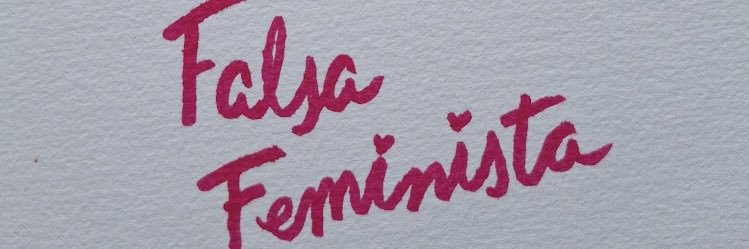 Falsa
Feminista